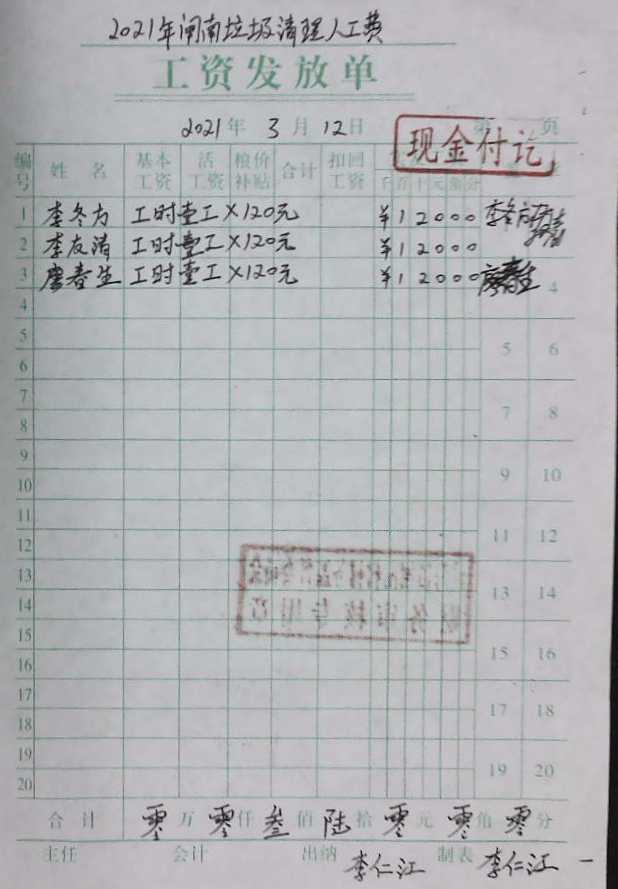 2021年闹南垃圾清理人工费
工资发放单
2021年 3月 12日 第 页
现金付讫
编号 姓名 基本工资 活工资 粮价补贴 合计 扣回工资 千百十元角分
1 李冬方 工时壹工×120元 ¥12000
2 李友清 工时壹工×120元 ¥12000
3 廖春生 工时壹工×120元 ¥12000 廖春生 4
4
5 5 6
6
7 7 8
8
9 9 10
10
11 11 12
12
13 13 14
14 财务审核专用章
15 15 16
16
17 17 18
18
19 19 20
20
合计 零万零仟叁佰陆拾零元零角零分
主任 会计 出纳 李仁江 制表 李仁江